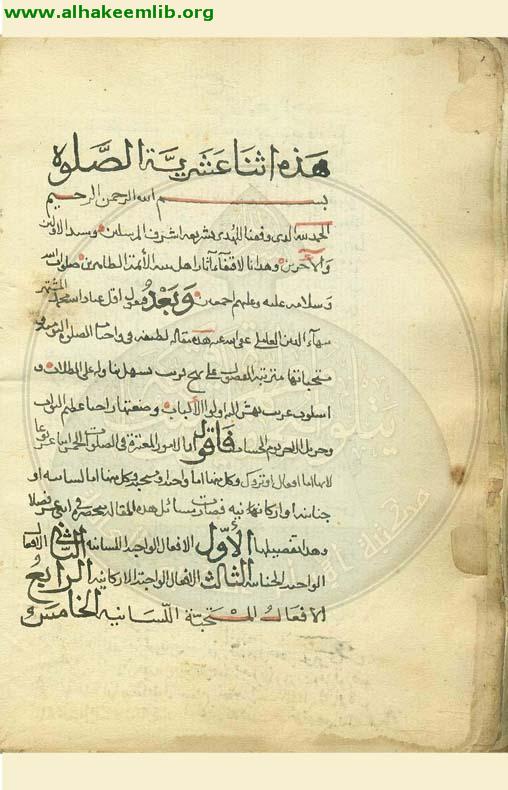 www.alhakeemlib.org
هذه اثنا عشرية الصلوة
بسم الله الرحمن الرحيم
الحمد لله الذى وفقنا للهدى بشريعة اشرف المرسلين وسيد الاولين
والآخرين وهدانا لاقتفاء آثار اهل بيته الأئمة الطاهرين صلوات الله
وسلامه عليه وعليهم اجمعين وبعد فيقول اقل عباد الله محمد المشتهر
بهاء الدين العاملى عفى الله عنه هذه مقالة لطيفة فى واجبات الصلوة اليومية و
مستحباتها مرتبة الفصول على نهج قريب تسهل تناوله على الطلاب و
اسلوب غريب يهش اليه اولوا الألباب وضعتها راجيا عظيم الثواب
وجزيل الاجر يوم الحساب فاقول ان الامور المعتبرة فى الصلوات الخمس اثنا عشر نوعا
لانها اما افعال او تروك وكل منهما اما واجب او مستحب وكل منها اما لسانية او
جنانية او اركانية فصارت مسائل هذه المقالة منحصرة فى اثنى عشر فصلا
وهذا تفصيلها الأول الافعال الواجبة اللسانية الثانى الافعال
الواجبة الجنانية الثالث الافعال الواجبة الاركانية الرابع
الافعال المستحبة اللسانية الخامس و